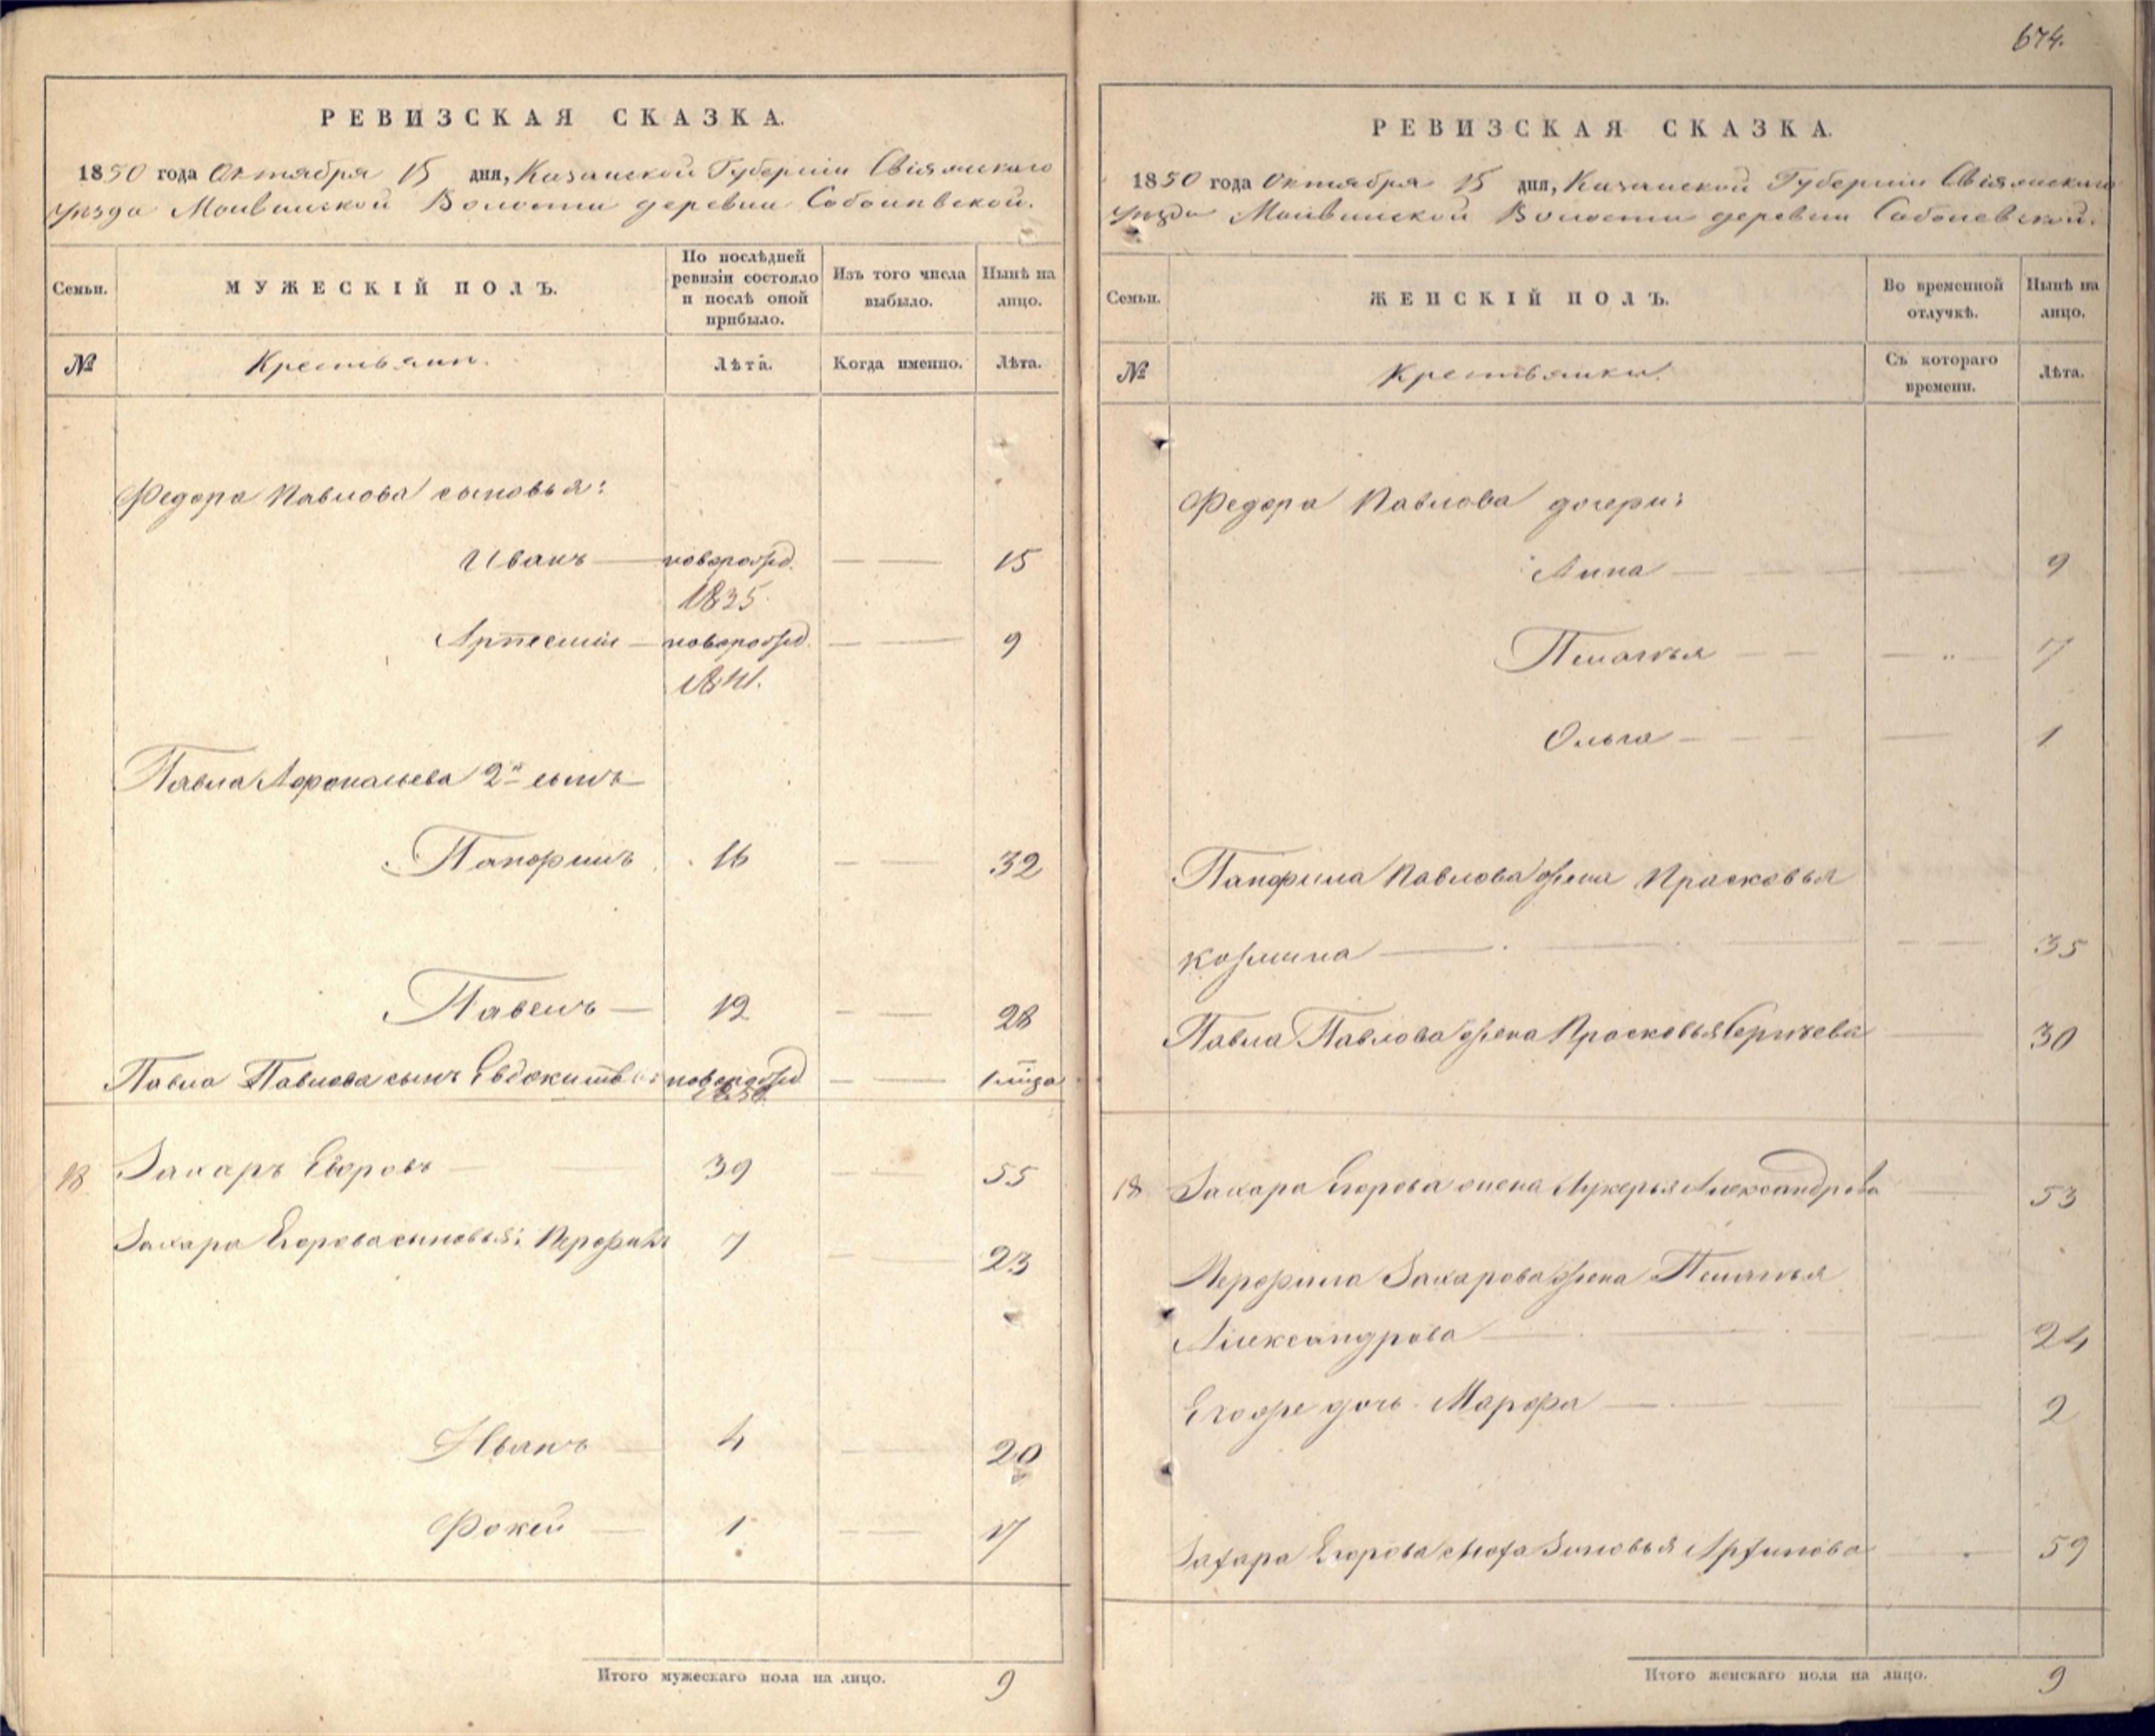 674.
РЕВИЗСКАЯ СКАЗКА.
1850 года Октября 15 дня, Казанской Губерніи Свіяжскаго
уѣзда Молвинской Волости деревни Соболевской.
Семьи.
МУЖЕСКІЙ ПОЛЪ.
По послѣдней
ревизіи состояло
и послѣ оной
прибыло.
Изъ того числа
выбыло.
Нынѣ на
лицо.
№
Крестьяне.
Лѣта.
Когда именно.
Лѣта.
Федора Павлова сыновья:
Иванъ — новорожд. — — 15
1835
Артемій — новорожд. — — 9
1841.
Павла Афонасьева 2й сынъ
Панфилъ 16 — — 32
Павелъ — 12 — — 28
Павла Павлова сынъ Евдокимъ новорожд — —
1850
18 Захаръ Егоровъ — 39 — — 55
Захара Егорова сыновья: Перфилъ 7 — — 23
Иванъ — 4 — — 20
Фокей — 1 — — 17
Итого мужескаго пола на лицо. 9
РЕВИЗСКАЯ СКАЗКА.
1850 года Октября 15 дня, Казанской Губерніи Свіяжскаго
уѣзда Молвинской Волости деревни Соболевской.
Семьи.
ЖЕНСКІЙ ПОЛЪ.
Во временной
отлучкѣ.
Нынѣ на
лицо.
№
Крестьянки.
Съ котораго
времени.
Лѣта.
Федора Павлова дочери:
Анна — — — — 9
Пелагья — — — 7
Ольга — — — — 1
Панфила Павлова жена Прасковья
Козмина — — — — 35
Павла Павлова жена Прасковья Сергѣева — 30
18 Захара Егорова жена Лукерья Александрова — 53
Перфила Захарова жена Пелагья
Александрова — — — 24
Егоже дочь Марфа — — — 2
Захара Егорова Зиновья — 59
Итого женскаго пола на лицо. 9